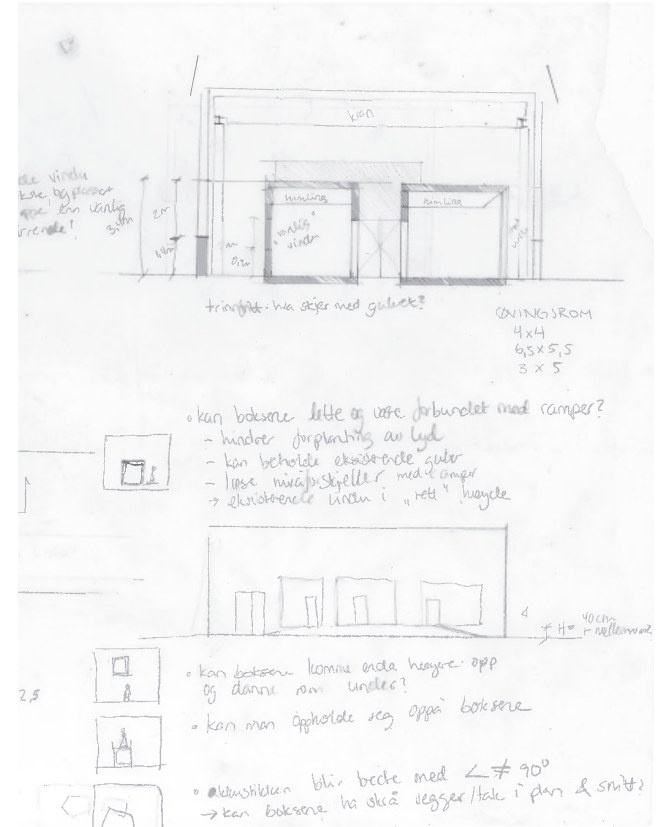 kran
himling
himling
"vanlig"
vindu
de vindu
enn vanlig
2m
trinnfritt: hva skjer med gulvet?
ØVINGSROM
4x4
6,5x5,5
3 x 5
• kan boksene lette og være forbundet med ramper?
- hindrer forplanting av lyd
- kan beholde eksisterende gulv
- løse nivåforskjeller med ramper
→ eksisterende vindu i "rett" høyde
4
H= 40cm
2,5
• kan boksene komme enda høyere opp
og danne rom under?
• kan man oppholde seg oppå boksene
• akustikken blir bedre med ∠ ≠ 90°
→ kan boksene ha skrå vegger/tak i plan & snitt?